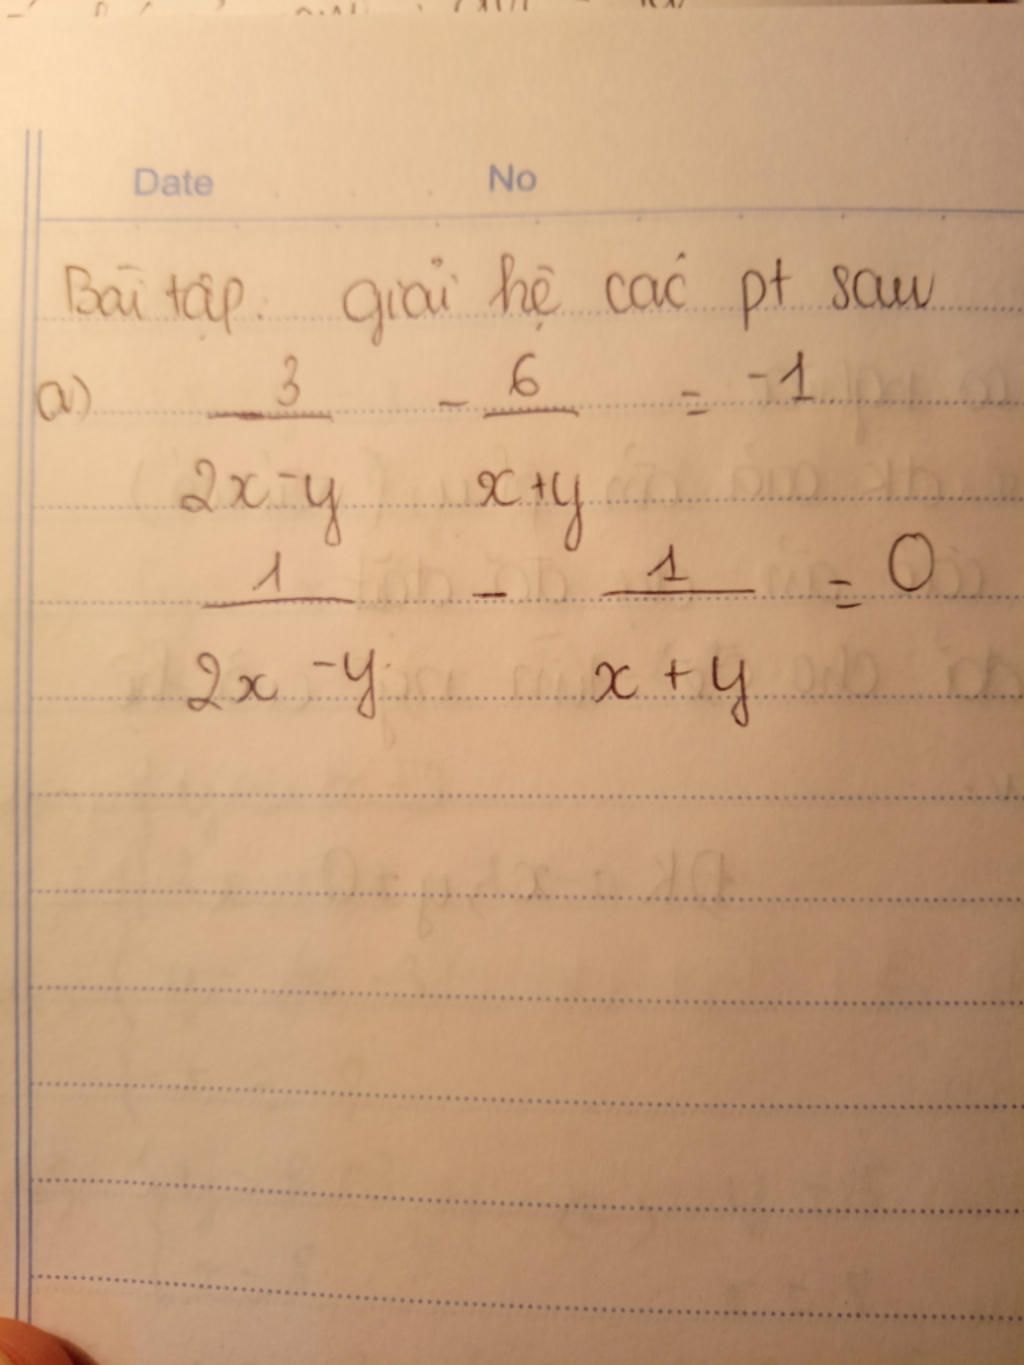 Date No
Bài tập. giải hệ các pt sau
a) 3 - 6 = -1
2x-y x+y
1 - 1 = 0
2x -y x + y